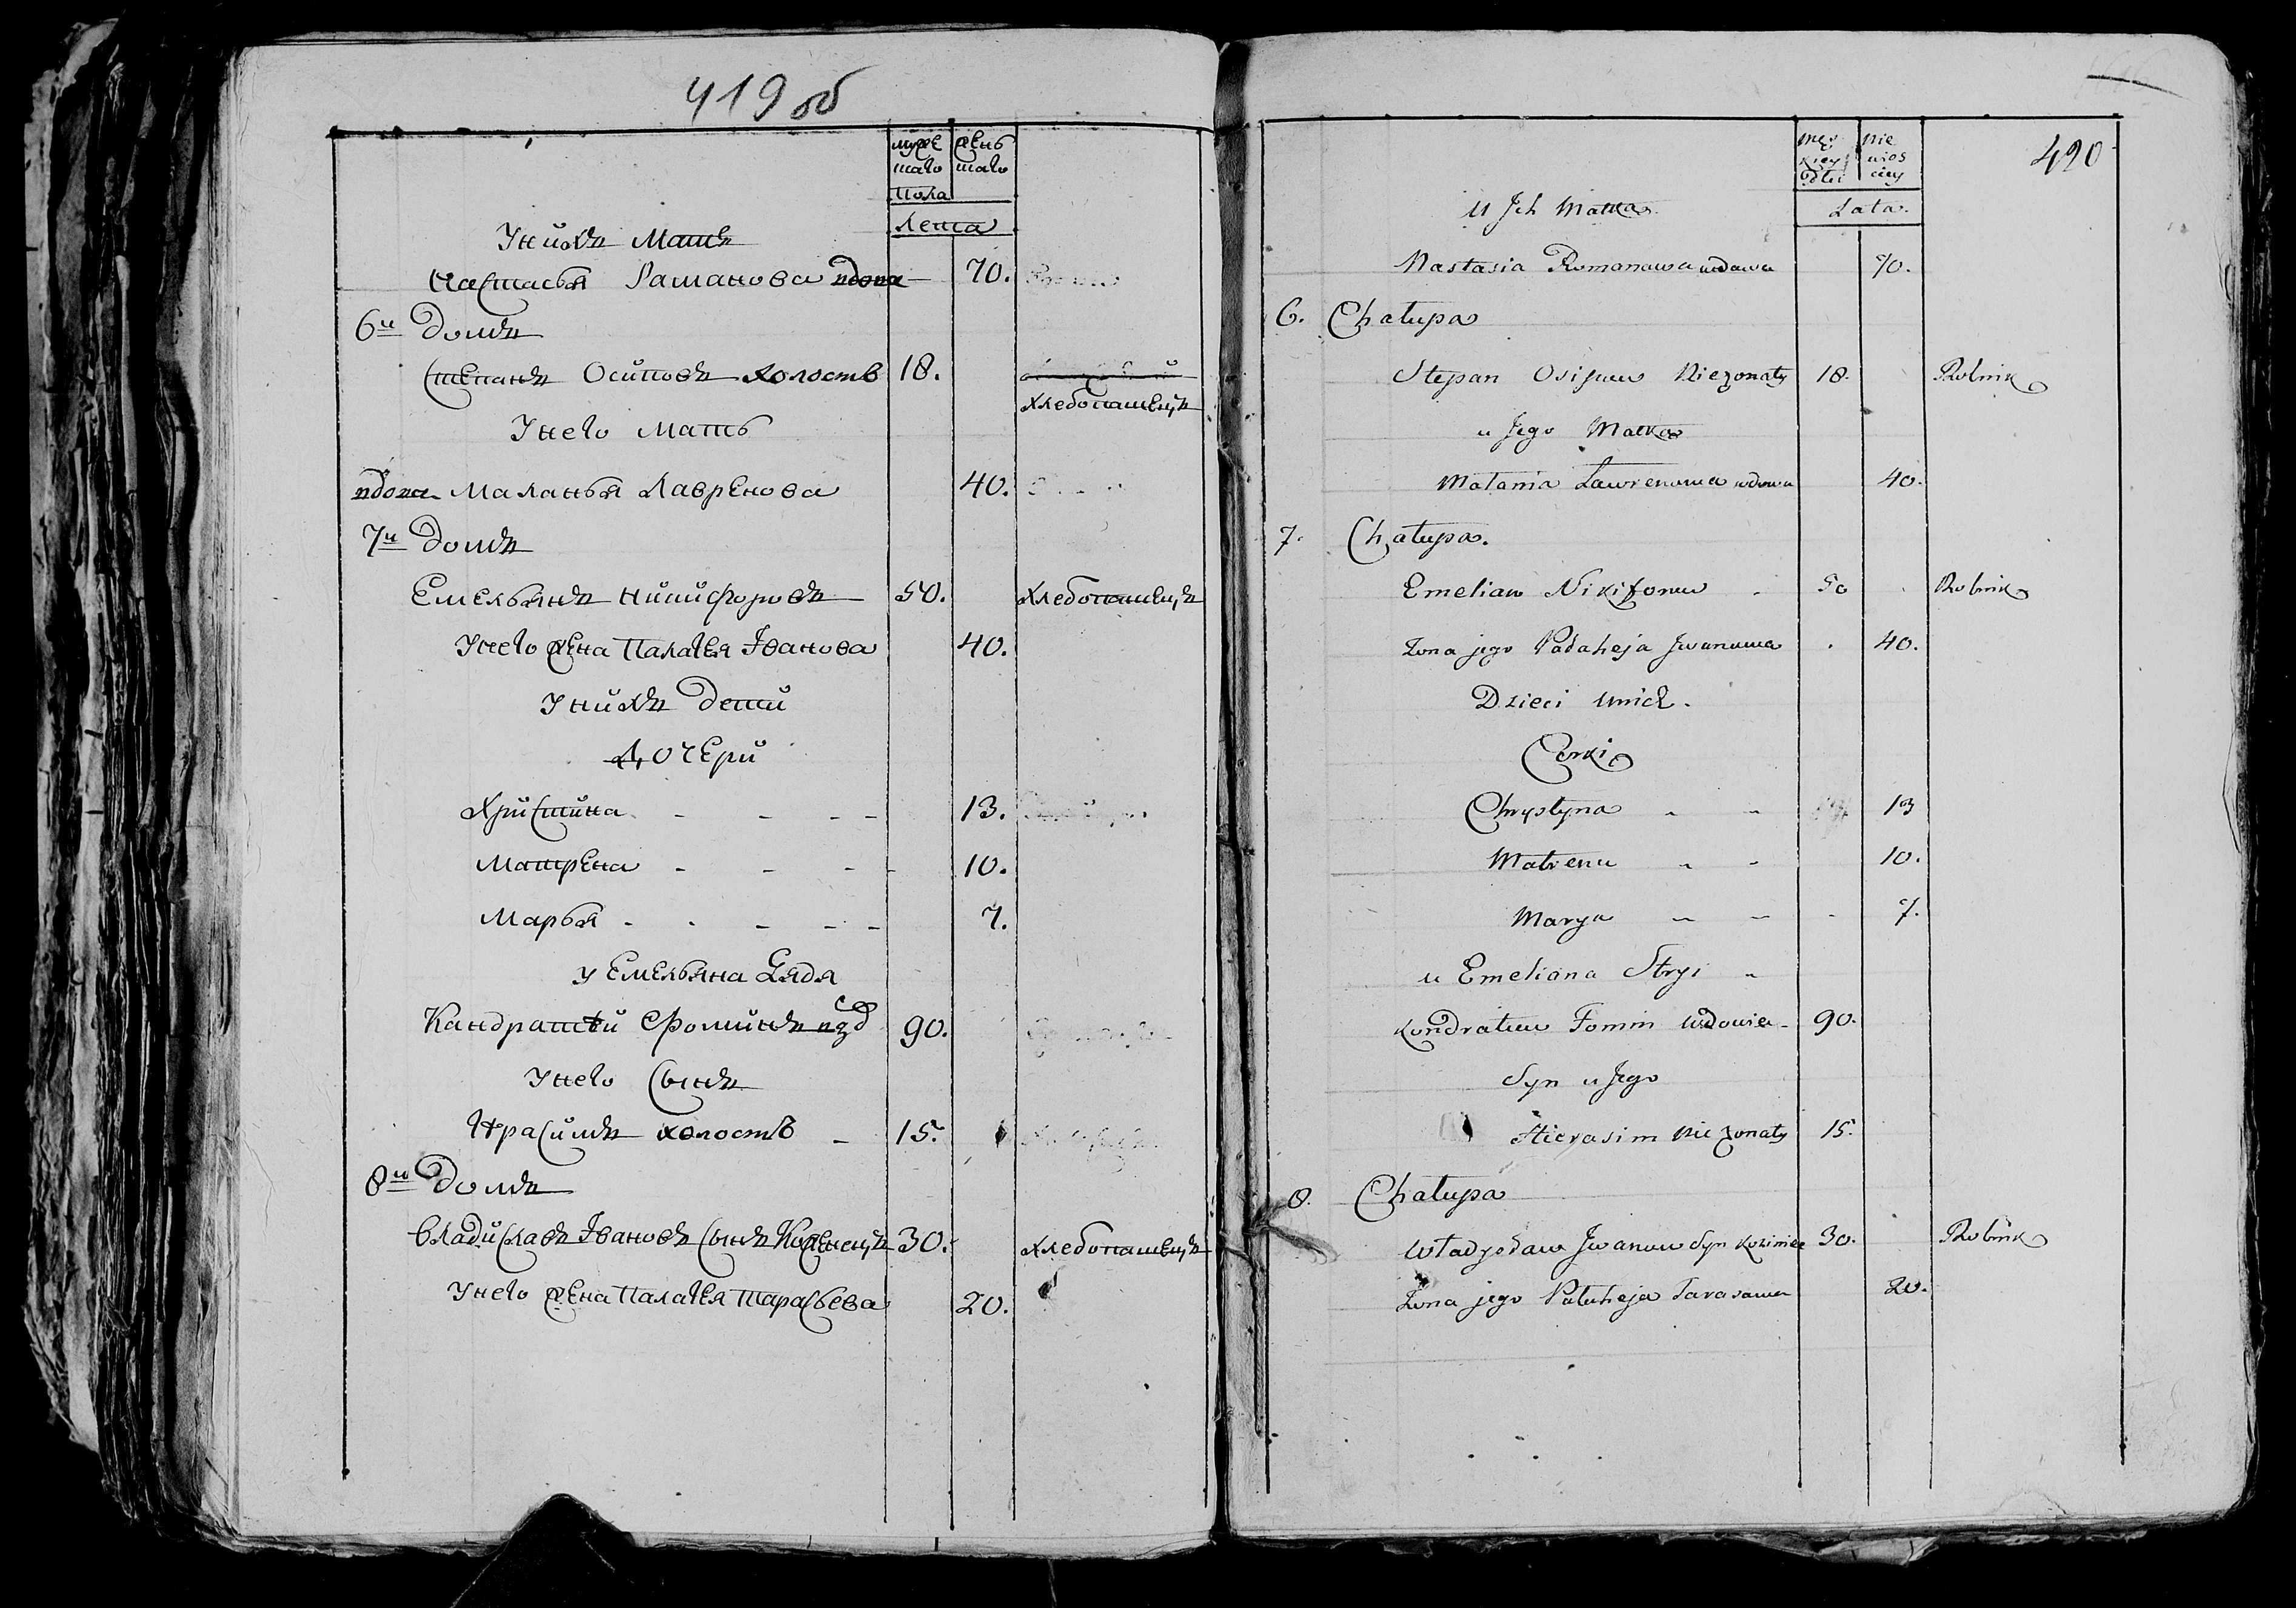 419 об
муже женъ
скаго скаго
пола
лета
У нихъ Мать
Настасья Раманова вдова 70.
6й домъ
Степанъ Осиповъ холостъ 18.
Хлебопашецъ
У него Мать
вдова Маланья Лавренова 40.
7й домъ
Емельянъ Никифоровъ 50. Хлебопашецъ
У него жена Палагея Іванова 40.
У нихъ дети
дочери
Христина - - - - 13.
Матрена - - - - 10.
Марья - - - - - 7.
у Емельяна дядя
Кандратей Фоминъ 90.
У него Сынъ
Ярасимъ холостъ - 15.
8й домъ
Владиславъ Івановъ Сынъ 30. Хлебопашецъ
У него жена Палагея Тарасьева 20.
420
Lata.
U Jch Matka
Nastasia Romanowa wdowa 70.
6. Chałupa
Stepan Osipuw Nieżonaty 18. Rolnik
u Jego Matka
Małania Ławrenowa wdowa 40.
7. Chałupa.
Emelian Nikifonuw 50 Rolnik
Żona jego Pałaheja Jwanuwa 40.
Dzieci unich.
Corki
Chrystyna 13
Matrena 10.
Marya 7.
u Emeliana Stryi
Kondratuw Fomin Wdowiec 90.
Syn u Jego
Hierasim Nie żonaty 15.
8. Chałupa
Władysław Jwanuw Syn 30. Rolnik
Żona jego Pałaheja Tarasawa 20.